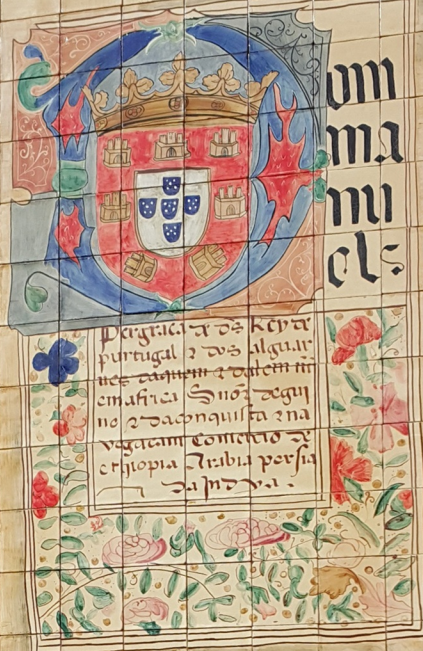 Dom
ma
nu
els
Per graca de ds Rey de
purtugal & dos alguar
ues daquem & dalem mr
em africa Snor de gui
ne & da conquista & na
vegacam comercio de
ethiopia Arabia persia
da Indya.